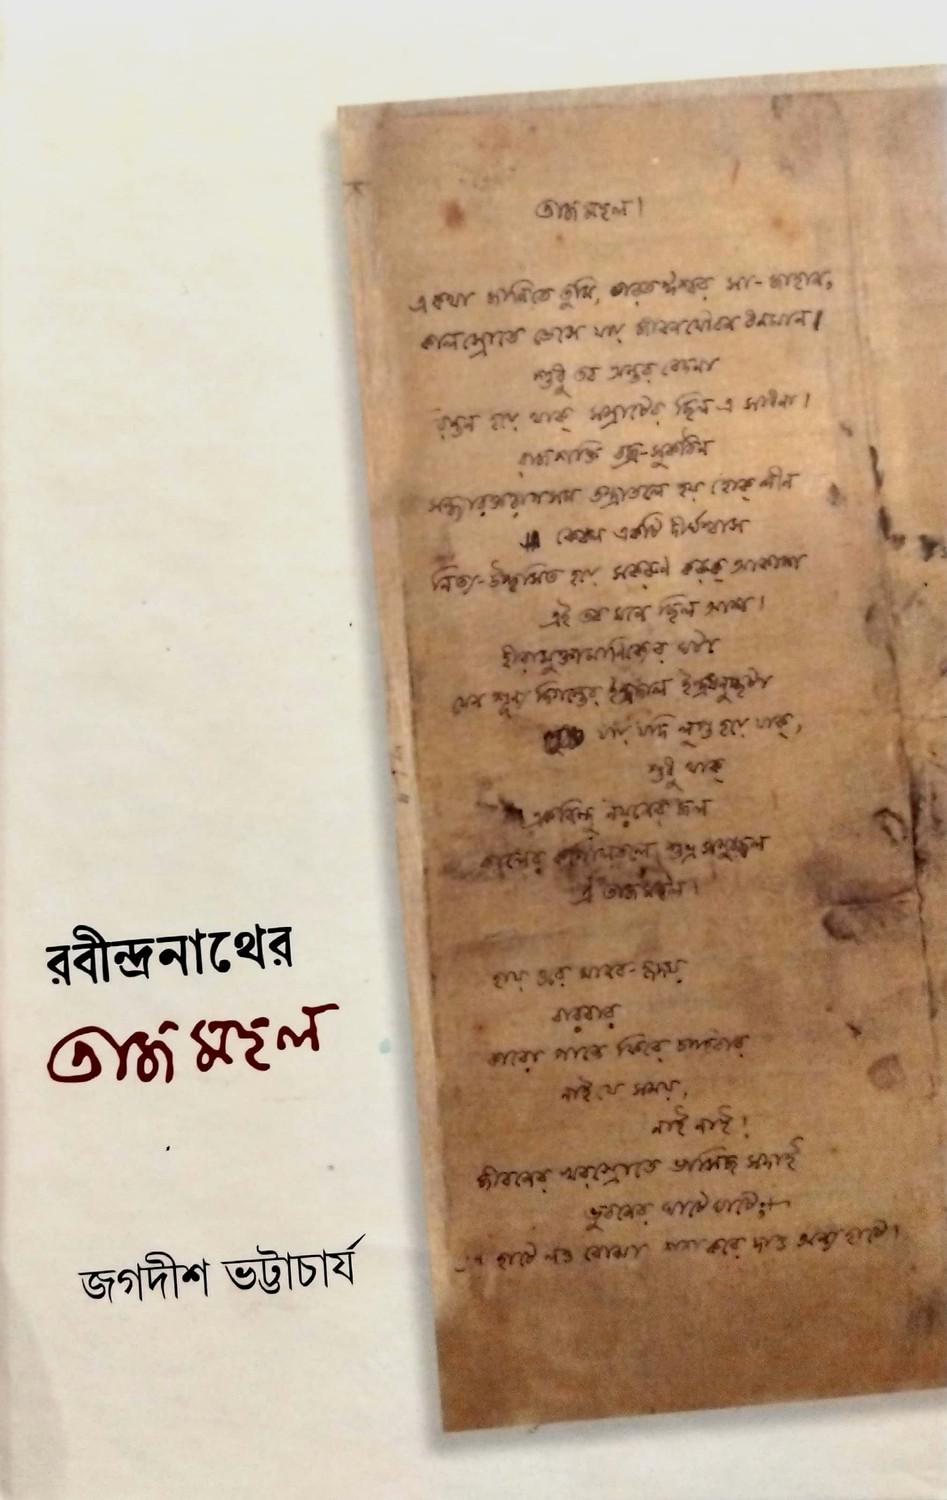 তাজমহল।
একথা জানিতে তুমি, ভারত ঈশ্বর সা-জাহান,
কালস্রোতে ভেসে যায় জীবন যৌবন ধনমান।
শুধু তব অন্তর বেদনা
চিরন্তন হয়ে থাক্ সম্রাটের ছিল এ সাধনা।
রাজশক্তি বজ্র-সুকঠিন
সন্ধ্যারক্তরাগসম তন্দ্রাতলে হয় হোক্ লীন
কেবল একটি দীর্ঘশ্বাস
নিত্য-উচ্ছ্বসিত হয়ে সকরুণ করুক আকাশ
এই তব মনে ছিল আশ।
হীরামুক্তামানিক্যের ঘটা
যেন শূন্য দিগন্তের ইন্দ্রজাল ইন্দ্রধনুচ্ছটা
যায় যদি লুপ্ত হয়ে যাক্,
শুধু থাক্
একবিন্দু নয়নের জল
কালের কপোলতলে শুভ্র সমুজ্জ্বল
এ তাজমহল।
হায় ওরে মানব-হৃদয়
বারবার
কারো পানে ফিরে চাহিবার
নাই যে সময়,
নাই নাই!
জীবনের খরস্রোতে ভাসিছ সদাই
ভুবনের ঘাটে ঘাটে;
এক হাটে লও বোঝা শূন্য করে দাও অন্য হাটে।
রবীন্দ্রনাথের
তাজমহল
জগদীশ ভট্টাচার্য